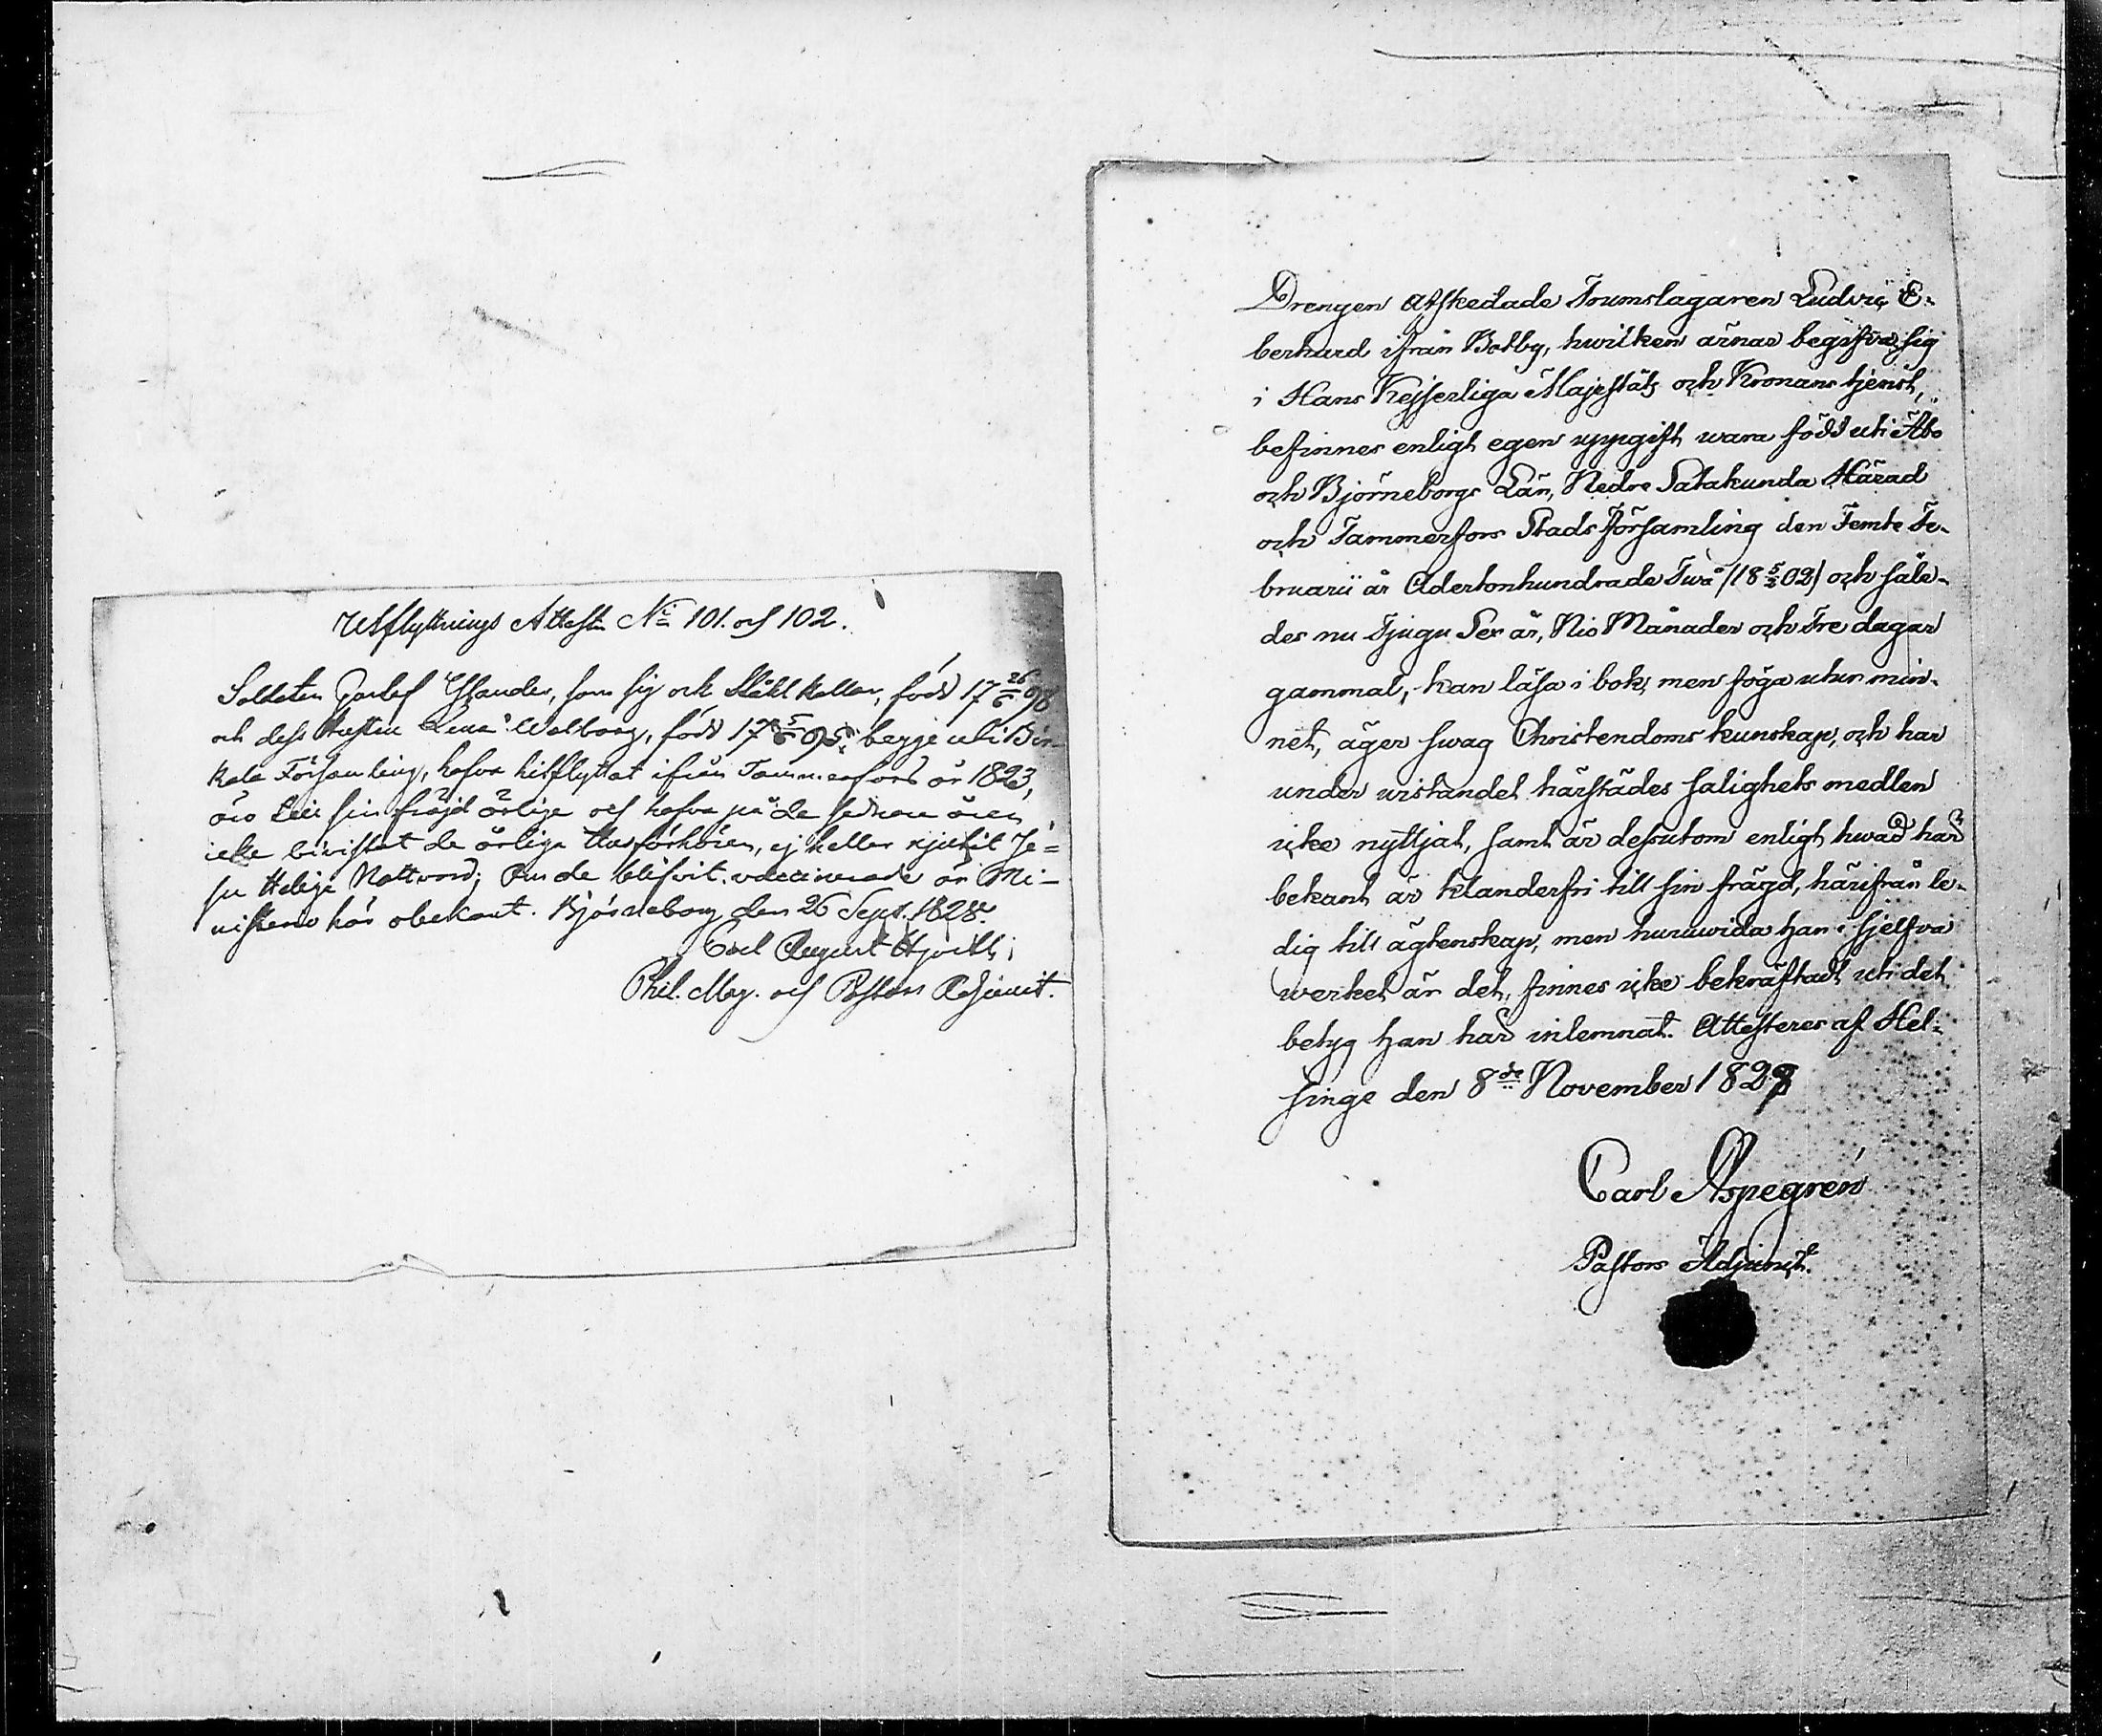 Utflyttnings Attest N:i 101. och 102.
Soldaten Gustaf Ylander, som sig ock Ståhl kallar, född 17 26/6 98
och dess Hustru Lena Walborg, född 17 5/6 95, begge uti Bir-
kala Församling, hafva hitflyttat ifrån Tammerfors år 1823,
äro till sin fräjd ärlige och hafva på de sednare åren
icke bivistat de årliga Husförhören, ej heller njutit Je-
su Helige Nattvard; Om de blifvit vaccinerade är Mi-
nisterio här obekant. Björneborg den 26 Sept. 1828.
Carl August Hjorth;
Phil. Mag. och Pastors Adjunct.
Drengen Afskedade Trumslagaren Ludvig E-
berhard ifrån Botby, hwilken ärnar begifva sig
i Hans Kejserliga Majestäts och Kronans tjenst,
befinnes enligt egen uppgift wara född uti Åbo
och Björneborgs Län, Nedre Satakunda Härad
och Tammerfors Stads Församling den Femte Fe-
bruarii år Adertonhundrade Två (18 5/2 02) och såle-
des nu Tjugu Sex år, Nio Månader och Tre dagar
gammal, kan läsa i bok, men föga utur min-
net, äger swag Christendoms kunskap, och har
under wistandet härstädes salighets medlen
icke nyttjat, samt är dessutom enligt hwad här
bekant är klanderfri till sin frägd, härifrån le-
dig till ägtenskap, men huruwida han i sjelfva
werket är det, finnes icke bekräftadt uti det
betyg han har inlemnat. Attesteres af Hel-
singe den 8de November 1828
Carl Aspegren
Pastors Adjunct.